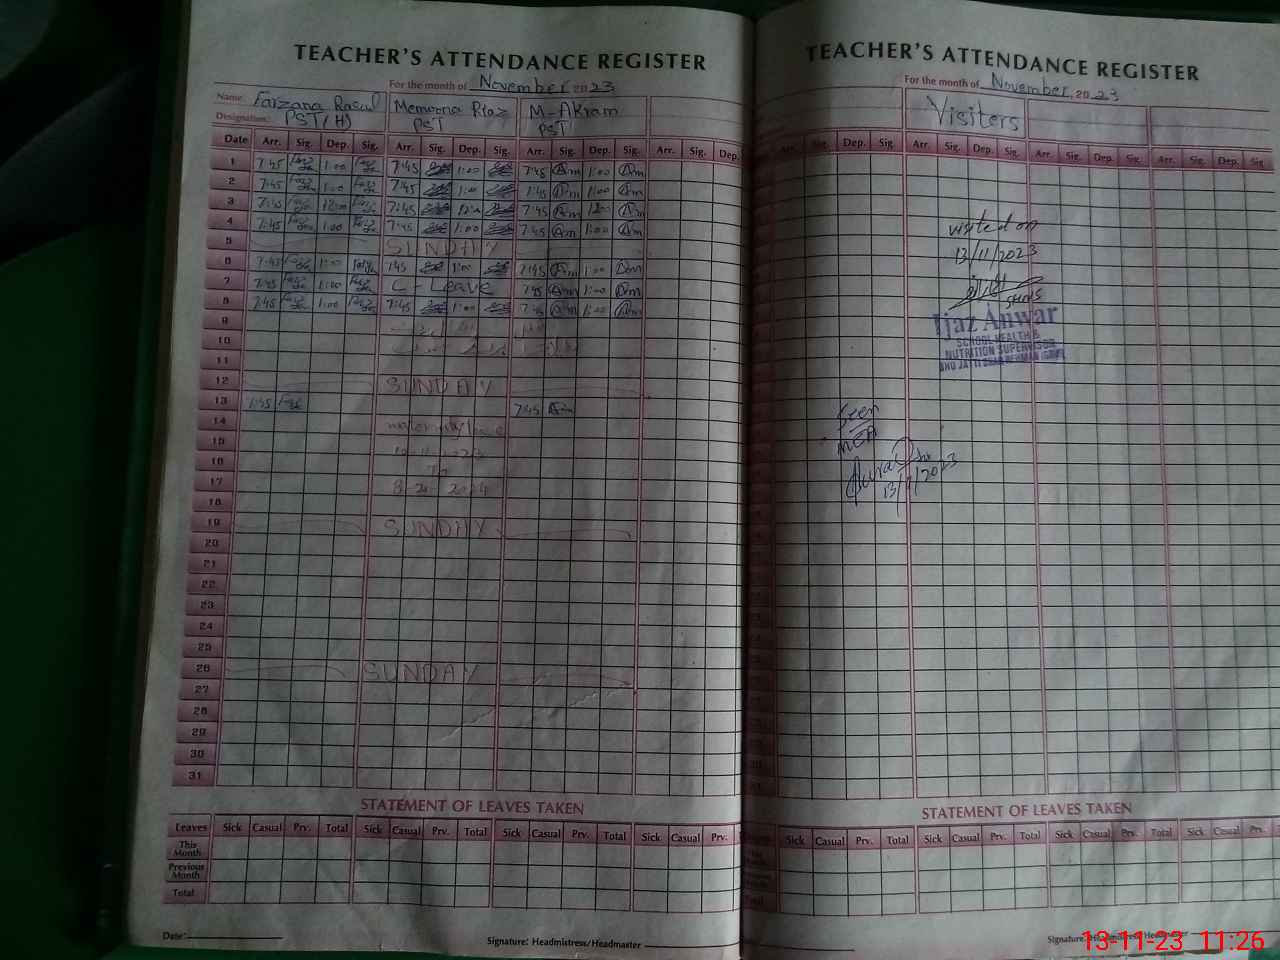 TEACHER'S ATTENDANCE REGISTER
For the month of November 2023
Name: Farzana Rasul Memoona Riaz M-Akram
Designation: PST(H) PST PST
Date Arr. Sig. Dep. Sig. Arr. Sig. Dep. Sig. Arr. Sig. Dep. Sig. Arr. Sig. Dep.
1 7:45 1:00 7:45 1:00 7:45 Am 1:00 Am
2 7:45 1:00 7:45 1:00 7:45 Am 1:00 Am
3 7:45 12:00 7:45 12:00 7:45 Am 12:00 Am
4 7:45 1:00 7:45 1:00 7:45 Am 1:00 Am
5 SUNDAY
6 7:45 1:00 7:45 1:00 7:45 Am 1:00 Am
7 7:45 1:00 C-Leave 7:45 Am 1:00 Am
8 7:45 1:00 7:45 1:00 7:45 Am 1:00 Am
9
10
11
12 SUNDAY
13 7:45 7:45 Am
14 maternity leave
15
16
17
18
19 SUNDAY
20
21
22
23
24
25
26 SUNDAY
27
28
29
30
31
STATEMENT OF LEAVES TAKEN
Leaves Sick Casual Prv. Total Sick Casual Prv. Total Sick Casual Prv. Total Sick Casual Prv.
This Month
Previous Month
Total
Date:
Signature: Headmistress/Headmaster
TEACHER'S ATTENDANCE REGISTER
For the month of November 2023
Visiters
Arr. Sig. Dep. Sig. Arr. Sig. Dep. Sig. Arr. Sig. Dep. Sig. Arr. Sig. Dep. Sig.
visited on
13/11/2023
SH&NS
Ijaz Anwar
SCHOOL HEALTH &
NUTRITION SUPERVISOR
Seen
MEA
13/11/2023
STATEMENT OF LEAVES TAKEN
Sick Casual Prv. Total Sick Casual Prv. Total Sick Casual Prv. Total Sick Casual Prv.
Signature: Headmistress/Headmaster
13-11-23 11:26